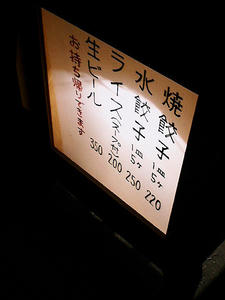 焼餃子 一皿5ヶ 220
水餃子 一皿5ヶ 250
ライス(スープ付) 200
生ビール 350
お持ち帰りできます